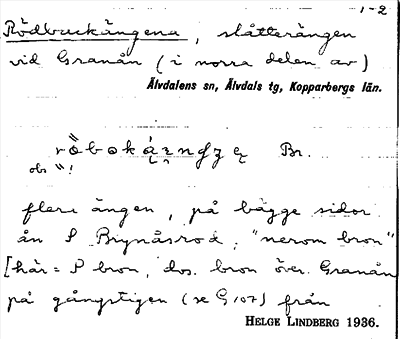 1-2
Rödbuckängena, slåtterängen
vid Granån (i norra delen av)
Älvdalens sn, Älvdals tg, Kopparbergs län.
Br.
obs "!
flera ängen, på bägge sidor
ån Brynåsrod, "nerom bron"
[här = bron, dvs. bron över Granån
på gångstigen (se G107) från
HELGE LINDBERG 1936.